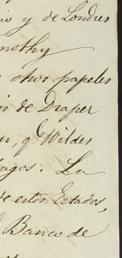 y de Londres
mothy
otros papeles
de Draper
q Wildes
agos. La
de estos Estados,
l Banco de